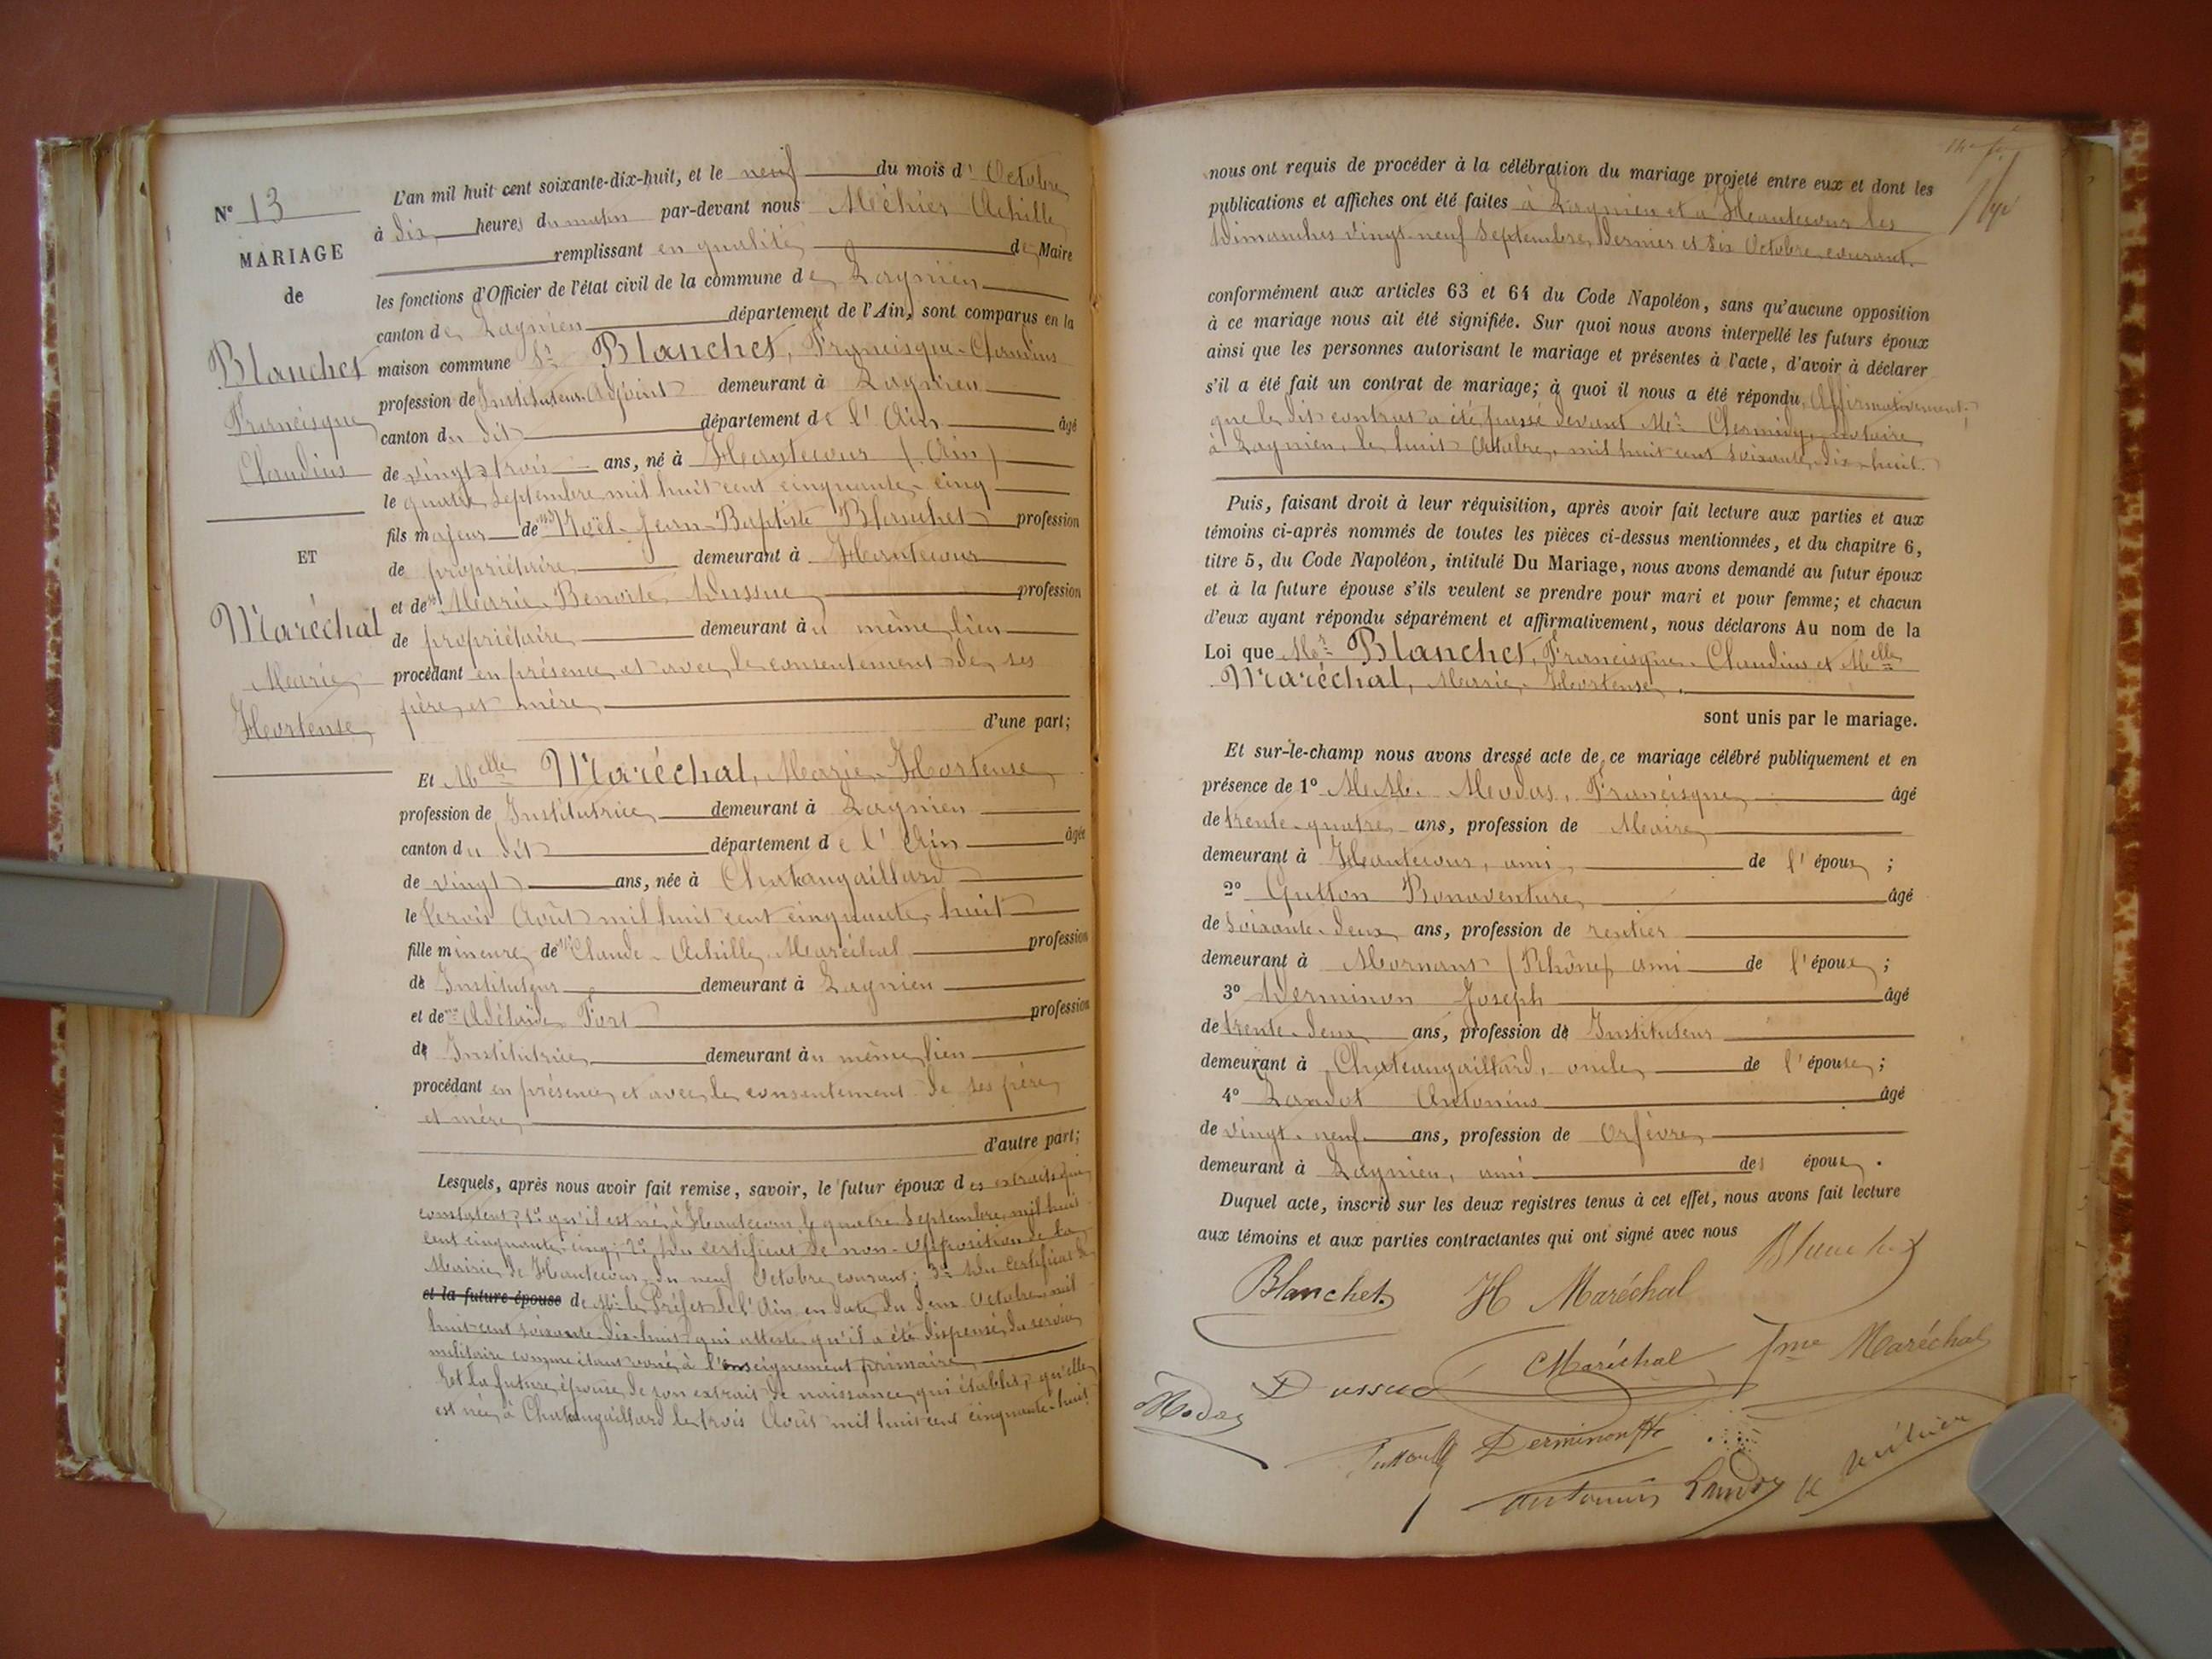 N° 13
MARIAGE
de
Blanchet
Francisque
Claudius
ET
Maréchal
Marie
Hortense
L'an mil huit cent soixante-dix-huit, et le neuf du mois d'Octobre
à dix heures du matin par-devant nous Méhier Achille
remplissant en qualité de Maire
les fonctions d'Officier de l'état civil de la commune de Lagnieu
canton de Lagnieu département de l'Ain, sont comparus en la
maison commune Sr Blanchet, Francisque-Claudius
profession de Instituteur-Adjoint demeurant à Lagnieu
canton du dit département de l'Ain âgé
de vingt-trois ans, né à Hautecour (Ain)
le quatre Septembre mil huit cent cinquante-cinq
fils majeur de Mr Noël-Jean-Baptiste Blanchet profession
de propriétaire demeurant à Hautecour
et de Marie-Benoite Dussuc profession
de propriétaire demeurant au même lieu
procédant en présence et avec le consentement de ses
père et mère
d'une part;
Et Melle Maréchal, Marie-Hortense
profession de Institutrice demeurant à Lagnieu
canton du dit département de l'Ain âgée
de vingt ans, née à Chateaugaillard
le trois Août mil huit cent cinquante-huit
fille mineure de Mr Claude-Achille Maréchal profession
de Instituteur demeurant à Lagnieu
et de Adélaïde Fort profession
de Institutrice demeurant au même lieu
procédant en présence et avec le consentement de ses père
et mère
d'autre part;
Lesquels, après nous avoir fait remise, savoir, le futur époux des extraits qui
constatent, 1° qu'il est né à Hautecour le quatre Septembre mil huit
cent cinquante-cinq; 2° Du certificat de non-opposition de la
Mairie de Hautecour, du neuf Octobre courant; 3° Du certificat de
et la future épouse de Mr le Préfet de l'Ain en date du deux Octobre mil
huit cent soixante-dix-huit qui atteste qu'il a été dispensé du service
militaire comme étant voué à l'enseignement primaire
Et la future épouse de son extrait de naissance qui établit, qu'elle
est née à Chateaugaillard le trois Août mil huit cent cinquante-huit
nous ont requis de procéder à la célébration du mariage projeté entre eux et dont les
publications et affiches ont été faites à Lagnieu et à Hautecour les
Dimanches vingt-neuf Septembre dernier et six Octobre courant.
conformément aux articles 63 et 64 du Code Napoléon, sans qu'aucune opposition
à ce mariage nous ait été signifiée. Sur quoi nous avons interpellé les futurs époux
ainsi que les personnes autorisant le mariage et présentes à l'acte, d'avoir à déclarer
s'il a été fait un contrat de mariage; à quoi il nous a été répondu Affirmativement;
que le dit contrat a été passé devant Me notaire
à Lagnieu, le huit Octobre, mil huit cent soixante-dix-huit.
Puis, faisant droit à leur réquisition, après avoir fait lecture aux parties et aux
témoins ci-après nommés de toutes les pièces ci-dessus mentionnées, et du chapitre 6,
titre 5, du Code Napoléon, intitulé Du Mariage, nous avons demandé au futur époux
et à la future épouse s'ils veulent se prendre pour mari et pour femme; et chacun
d'eux ayant répondu séparément et affirmativement, nous déclarons Au nom de la
Loi que Mr Blanchet, Francisque-Claudius et Melle
Maréchal, Marie-Hortense.
sont unis par le mariage.
Et sur-le-champ nous avons dressé acte de ce mariage célébré publiquement et en
présence de 1° M.M. Modas, Francisque âgé
de trente-quatre ans, profession de Maire
demeurant à Hautecour, ami de l'époux;
2° Gutton Bonaventure âgé
de soixante-deux ans, profession de rentier
demeurant à Mornant (Rhône) ami de l'époux;
3° Derminon Joseph âgé
de trente-deux ans, profession de Instituteur
demeurant à Chateaugaillard, oncle de l'épouse;
4° Landot Antonius âgé
de vingt-neuf ans, profession de Orfèvre
demeurant à Lagnieu, ami des époux.
Duquel acte, inscrit sur les deux registres tenus à cet effet, nous avons fait lecture
aux témoins et aux parties contractantes qui ont signé avec nous
Blanchet H Maréchal Blanchet
Maréchal fme Maréchal
Dussuc
Modas
Derminon
Antonius Landot